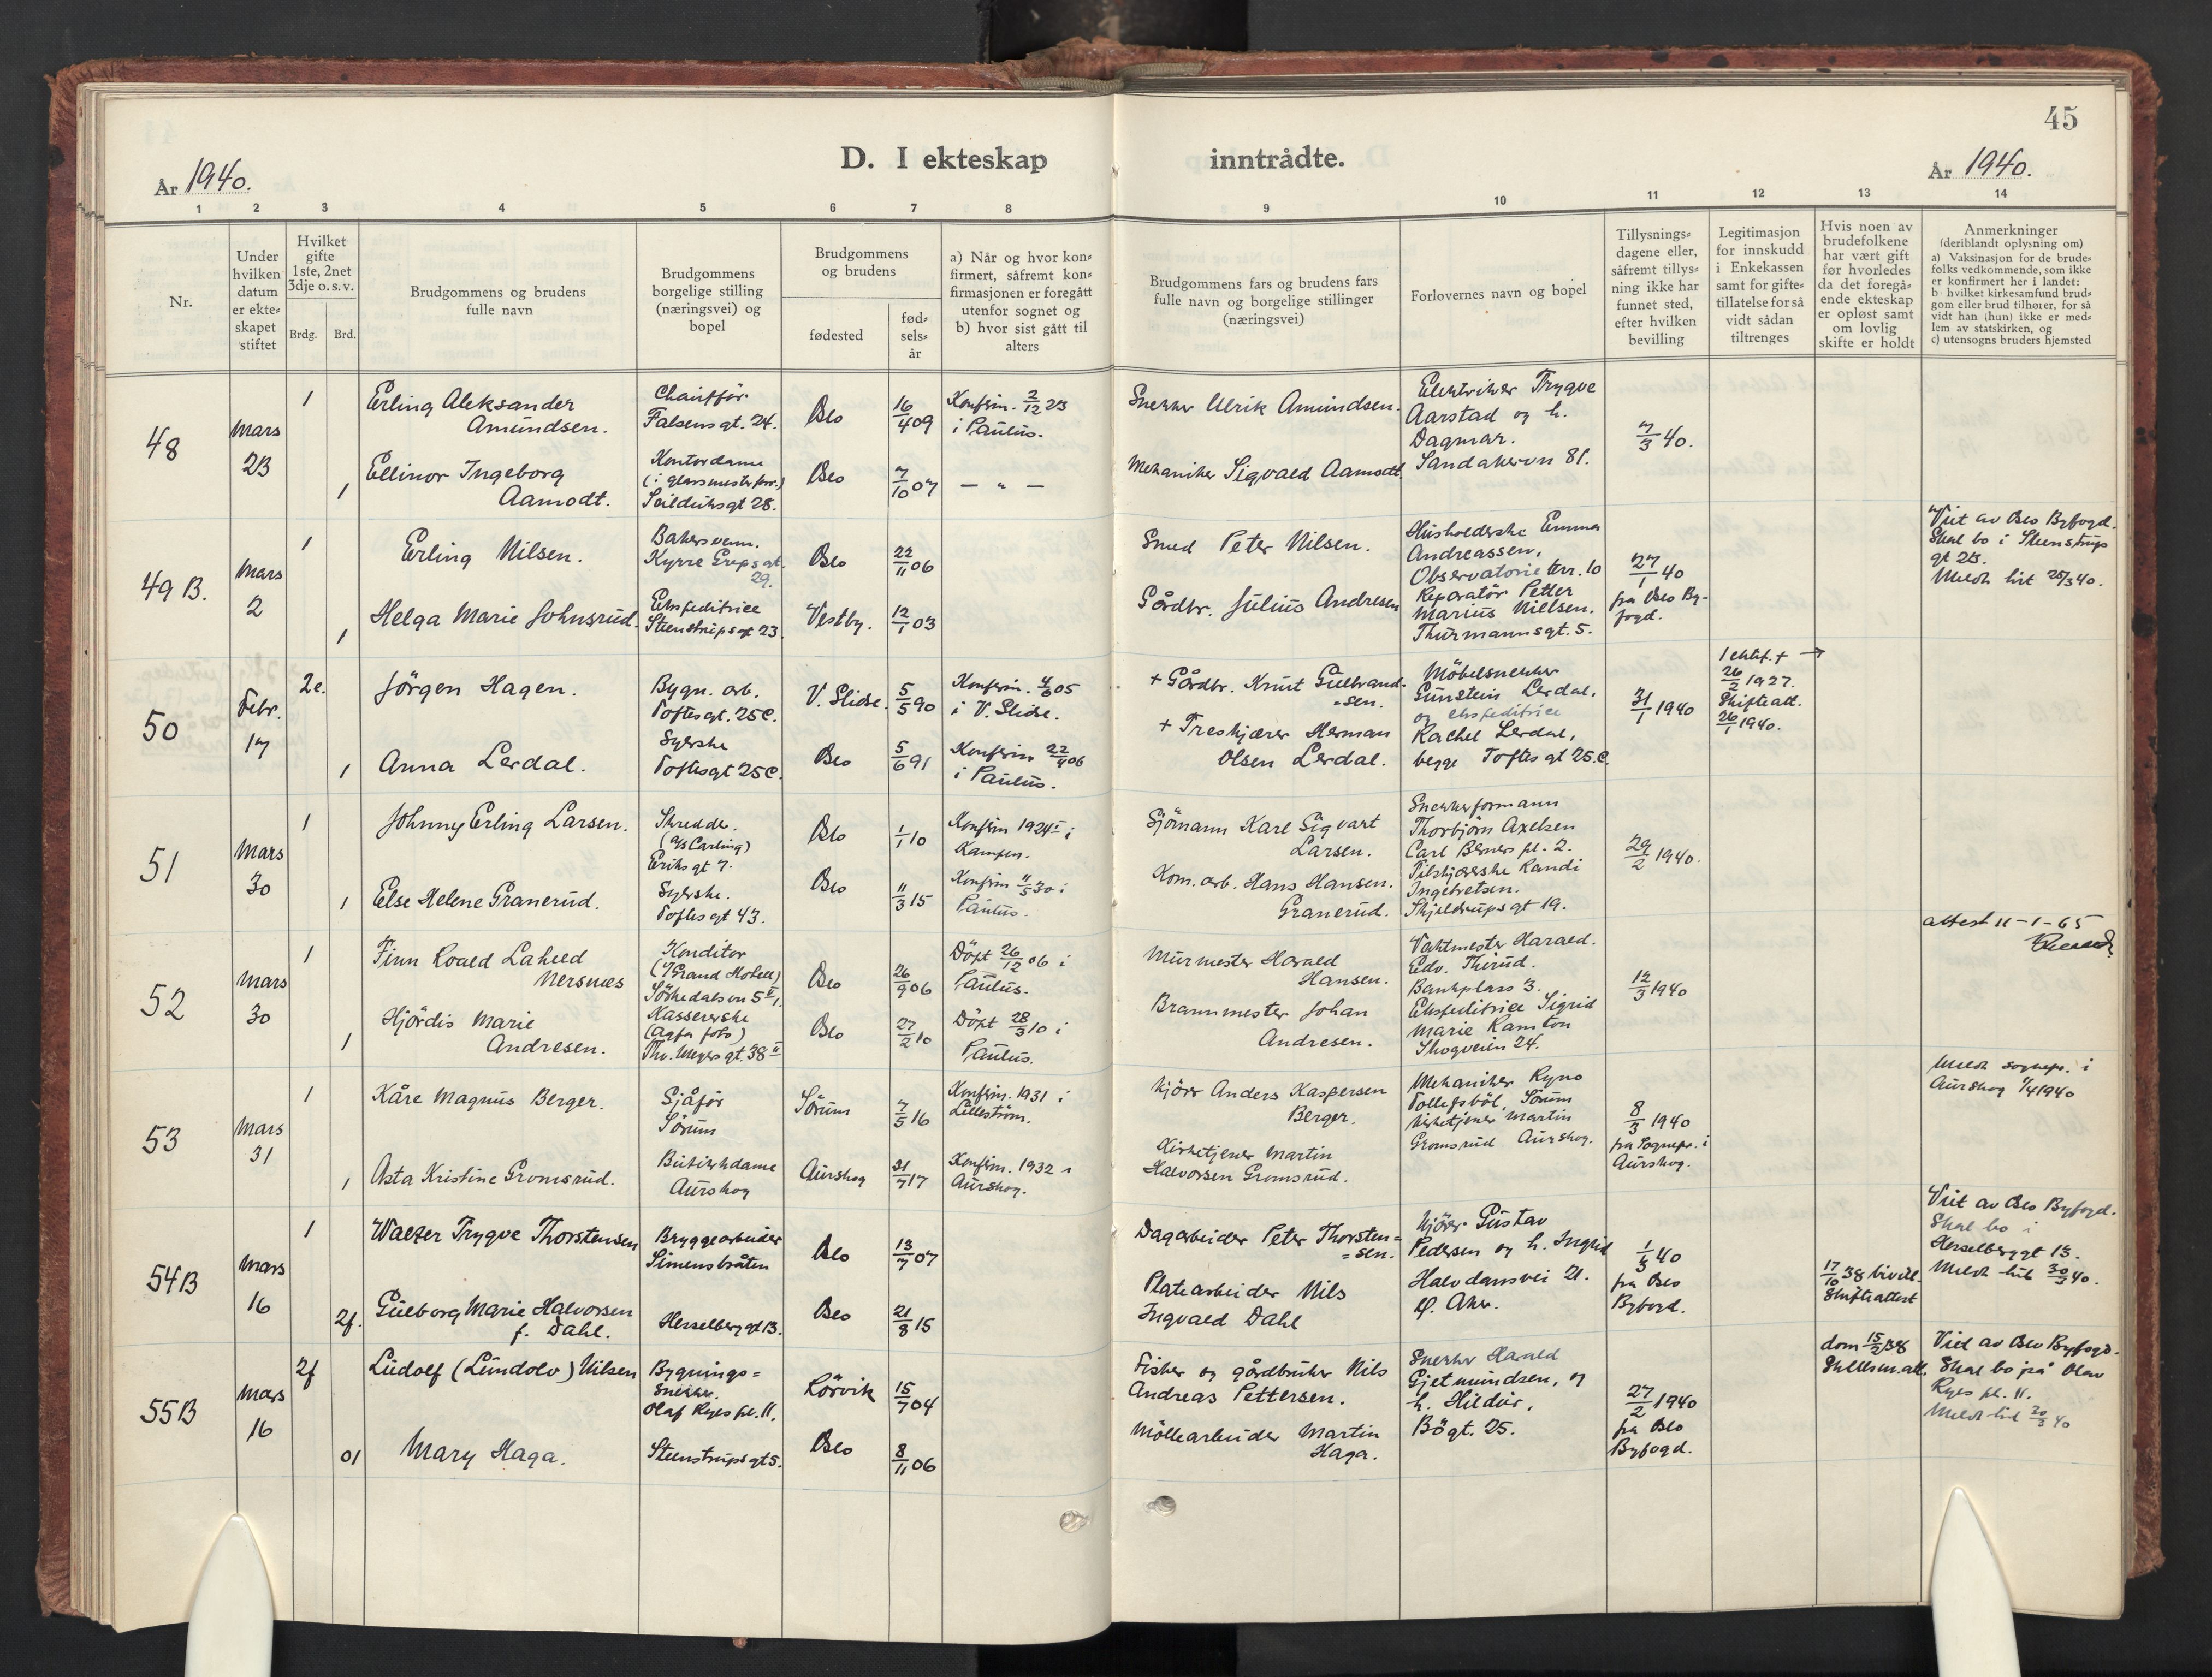 45
D. I ekteskap inntrådte.
År 1940.
År 1940.
1 2 3 4 5 6 7 8 9 10 11 12 13 14
Nr.
Under
hvilken
datum
er ekte-
skapet
stiftet
Hvilket
gifte
1ste, 2net
3dje o. s. v.
Brdg. Brd.
Brudgommens og brudens
fulle navn
Brudgommens
borgelige stilling
(næringsvei) og
bopel
Brudgommens
og brudens
fødested
fød-
sels-
år
a) Når og hvor kon-
firmert, såfremt kon-
firmasjonen er foregått
utenfor sognet og
b) hvor sist gått til
alters
Brudgommens fars og brudens fars
fulle navn og borgelige stillinger
(næringsvei)
Forlovernes navn og bopel
Tillysnings-
dagene eller,
såfremt tillys-
ning ikke har
funnet sted,
efter hvilken
bevilling
Legitimasjon
for innskudd
i Enkekassen
samt for gifte-
tillatelse for så
vidt sådan
tiltrenges
Hvis noen av
brudefolkene
har vært gift
før hvorledes
da det foregå-
ende ekteskap
er opløst samt
om lovlig
skifte er holdt
Anmerkninger
(deriblandt oplysning om)
a) Vaksinasjon for de brude-
folks vedkommende, som ikke
er konfirmert her i landet:
b hvilket kirkesamfund brud-
gom eller brud tilhører, for så
vidt han (hun) ikke er med-
lem av statskirken, og
c) utensogns bruders hjemsted
48
Mars
23
1
Erling Aleksander
Amundsen.
Chauffør
Falsensgt. 24.
Oslo
16/4 09
Konfirm. 2/12 23
i Paulus.
Snekker Ulrik Amundsen.
Elektriker Trygve
Aarstad og h.
Dagmar.
Sandakervn 81.
7/3 40.
1
Ellinor Ingeborg
Aamodt.
Kontordame
(i glassmesterforr.)
Seilduksgt 28.
Oslo
7/10 07
— " —
Mekaniker Sigvald Aamodt
49 B.
Mars
2
1
Erling Nilsen.
Bakersvenn.
Kyrre Grepsgt.
29.
Oslo
22/11 06
Smed Peter Nilsen.
Husholderske Emma
Andreassen,
Observatorie terr. 10
Reparatör Petter
Marius Nielsen.
Thurmannsgt. 5.
27/1 40
fra Oslo By-
fogd.
Viet av Oslo Byfogd.
Skal bo i Steenstrups
gt 23.
Meldt hit 25/3 40.
1
Helga Marie Johnsrud.
Ekspeditrice
Steenstrupsgt 23.
Vestby.
12/1 03
Gårdbr. Julius Andresen
50
Febr.
17
2e.
Jörgen Hagen.
Bygn. arb.
Toftesgt. 25C.
V. Slidre.
5/5 90
Konfirm. 4/6 05
i V. Slidre.
+ Gårdbr. Knut Gulbrand-
-sen.
Möbelsnekker
Gunstein Lerdal,
og ekspeditrice
Rachel Lerdal,
begge Toftesgt 25.C.
31/1 1940
1 ektef. + →
26/2 1927.
Skifteatt.
26/1 1940.
1
Anna Lerdal.
Syerske
Toftesgt 25C.
Oslo
5/6 91
Konfirm 22/4 06
i Paulus.
+ Treskjærer Herman
Olsen Lerdal.
51
Mars
30
1
Johnny Erling Larsen.
Skredder.
(a/s Carling)
Eriksgt 7.
Oslo
1/1 10
Konfirm 1924 i
Kampen.
Sjömann Karl Sigvart
Larsen.
Snekkerformann
Thorbjörn Axelsen
Carl Berners pl. 2.
Tilskjærerske Randi
Ingebretsen.
Skjeldrupsgt 19.
29/2 1940.
1
Else Helene Granerud.
Syerske.
Toftesgt 43.
Oslo
11/3 15
Konfirm 11/5 30 i
Paulus.
Kom. arb. Hans Hansen.
Granerud.
52
Mars
30
1
Finn Roald Lahell
Mersnæs
Konditor
(Grand Hotell)
Sörkedalsvn 5 II/1.
Oslo
26/9 06
Döpt 26/12 06 i
Paulus.
Murmester Harald
Hansen.
Vaktmester Harald.
Edv. Thirud.
Bankplass 3.
Ekspeditrice Sigrid
Marie Ramton
Skogveien 24.
12/3 1940
attest 11-1-65
1
Hjördis Marie
Andresen.
Kassererske
(Agfa foto)
Thv. Meyersgt. 38 II
Oslo
27/2 10
Döpt 28/3 10 i
Paulus.
Brannmester Johan
Andresen.
53
Mars
31
1
Kåre Magnus Berger.
Sjåför
Sörum
Sörum
7/5 16
Konfirm. 1931 i
Lilleström.
Kjörer Anders Kaspersen
Berger.
Mekaniker Kyno
Tollefsböl, Sörum
Kirketjener Martin
Gromsrud Aurskog.
8/3 1940
fra Sognepr. i
Aurskog.
Meldt sognepr. i
Aurskog 1/4 1940
1
Asta Kristine Gromsrud.
Butikkdame
Aurskog
Aurskog
31/7 17
Konfirm. 1932 i
Aurskog.
Kirketjener Martin
Halvorsen Gromsrud.
54B
Mars
16
1
Walter Trygve Thorstensen
Bryggearbeider
Simensbråten
Oslo
13/7 07
Dagarbeider Peter Thorsten=
=sen.
Kjörer Gustav
Pedersen og h. Ingrid
Halvdansvei 21.
Ö. Aker.
1/3 40
fra Oslo
Byfogd.
17/10 38 bivill.
Skifteattest
Viet av Oslo Byfogd.
Skal bo i
Hesselberggt 13.
Meldt hit 30/3 40.
2f.
Gulborg Marie Halvorsen
f. Dahl.
Hesselberggt 13.
Oslo
21/8 15
Platearbeider Nils
Ingvald Dahl
55B
Mars
16
2f
Ludolf (Lundolv) Nilsen
Bygnings=
snekker.
Olaf Ryes pl. 11.
Rörvik
15/7 04
Fisker og gårdbruker Nils
Andreas Pettersen.
Snekker Harald
Gjetmundsen, og
h. Hildur,
Bögt. 25.
27/2 1940
fra Oslo
Byfogd.
dom 15/2 38
Skilsm.att.
Viet av Oslo Byfogd.
Skal bo på Olav
Ryes pl. 11.
Meldt hit 30/3 40
01
Mary Haga.
Steenstrupsgt 5.
Oslo
8/11 06
Möllearbeider Martin
Haga.